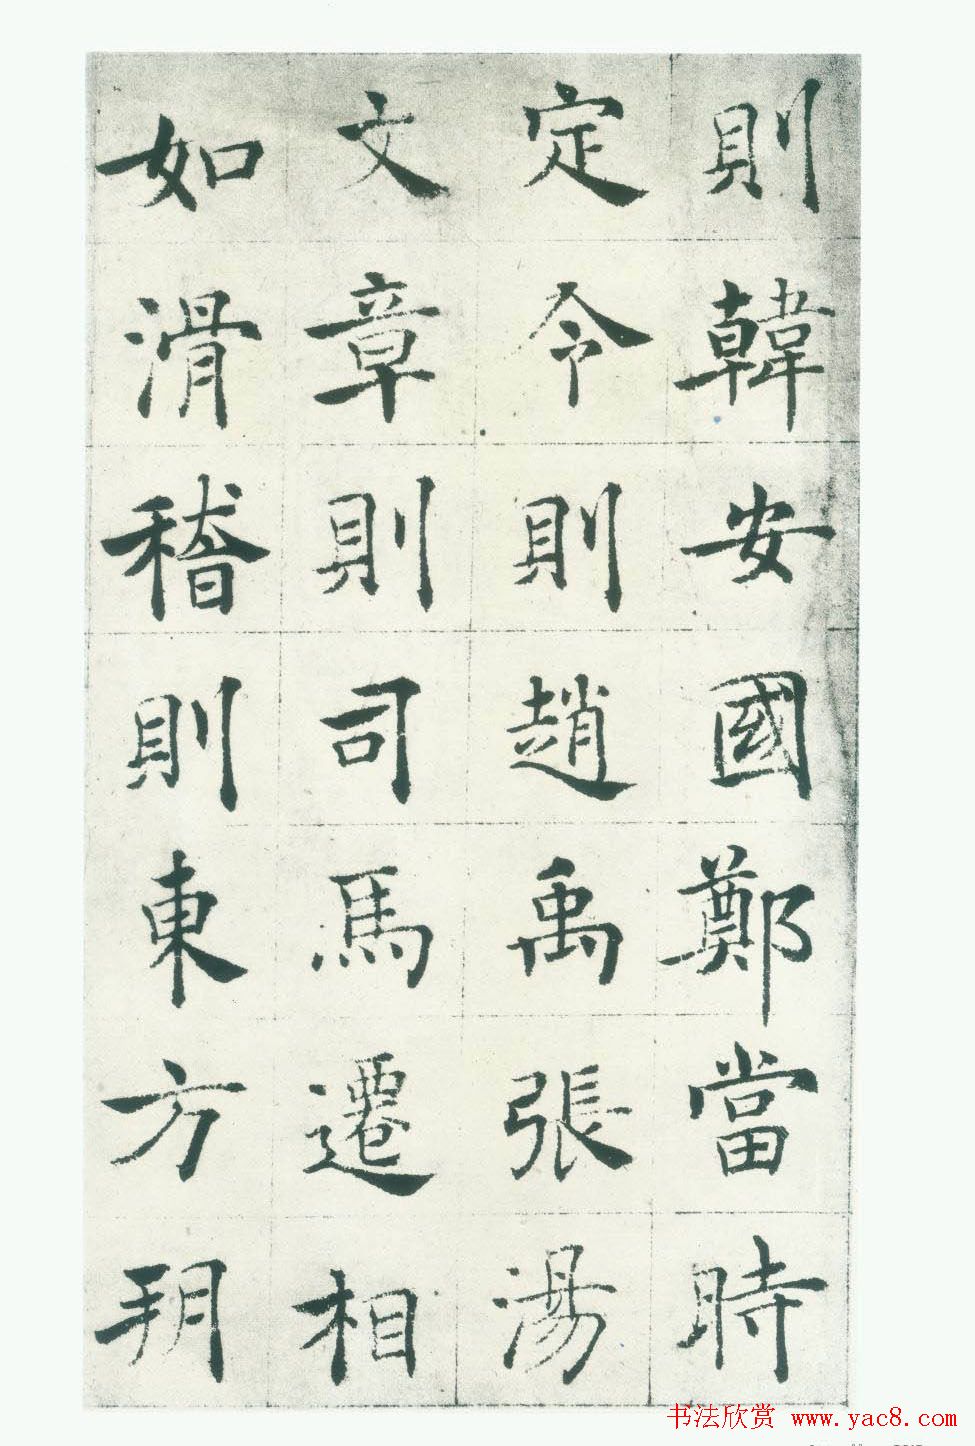 則韓安國鄭當時
定令則趙禹張湯
文章則司馬遷相
如滑稽則東方朔
书法欣赏 www.yac8.com